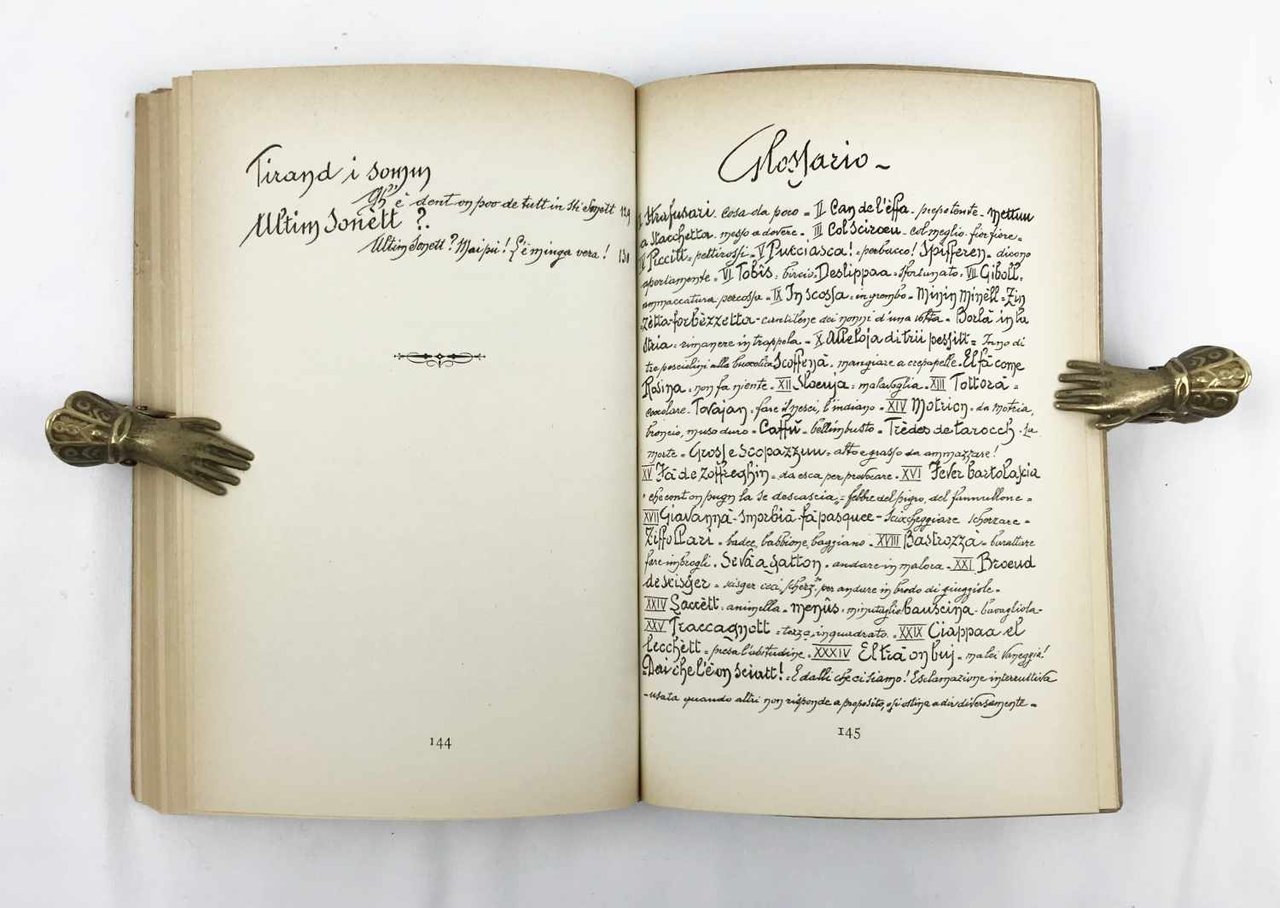 Tirand i somm
Gh'è dent on poo de tutt in sti Sonett 129
Ultim Sonètt?
Ultim Sonett? Mai pü! L'è minga vera! 130
144
Glossario -
Strafusari. cosa da poco = II Can de l'èffa - prepotente - Mettuu
a Stacchetta. messo a dovere - III Col Sciroeu - col meglio fior fiore =
Picciti = pettirossi = V Pucciasca! = perbacco! Spifferen = dicono
apertamente = VI Tobîs = bircio = Deslippaa = sfortunato. VII Giboll =
ammaccatura percossa = IX In scossa = in grembo = Minin Minèll = Zin
Zètta-forbèzzetta - cantilene dei nonni d'una volta = Borlà in la
stria = rimanere in trappola = X Alleloja di trii pessitt = Inno di
tre pesciolini alla buccolica Scoffenà = mangiare a crepapelle. El fà come
Rosina = non fa niente = XII Sloenja = malavoglia = XIII Tottorà =
coccolare = Tovajan = fare il nesci, l'indiano = XIV Motrion = da motria,
broncio, muso duro = Caffü = bellimbusto = Trèdes de tarocch = La
morte = Gross e Scopazzuu = alto e grasso da ammazzare!
XV Fà de Zoffreghin = da esca per provocare = XVI Fever bartolaxia
" che cont on pugn la se descascia = febbre del pigro, del fannullone =
XVII Giavannà-smorbià-fà pasquee - Sciocheggiare scherzare =
Ziffollari = badee, babbione, baggiano = XVIII Bastrozzà = barattare
fare imbrogli = Se và a Gatton = andare in malora = XXI Broeud
de scisger = scisger ceci, scherz. per andare in brodo di giuggiole =
XXIV Saccètt = animella = menüs = minutaglio bauscina = bavagliola =
XXV Traccagnott = tozzo, inquadrato = XXIX Ciappaa el
lecchètt = presa l'abitudine = XXXIV El trà on buj = ma lei vaneggia!
Dai che l'è on sciatt! = E dalli che ci siamo! Esclamazione interruttiva
- usata quando altri non risponde a proposito, o si ostina a dir diversamente =
145